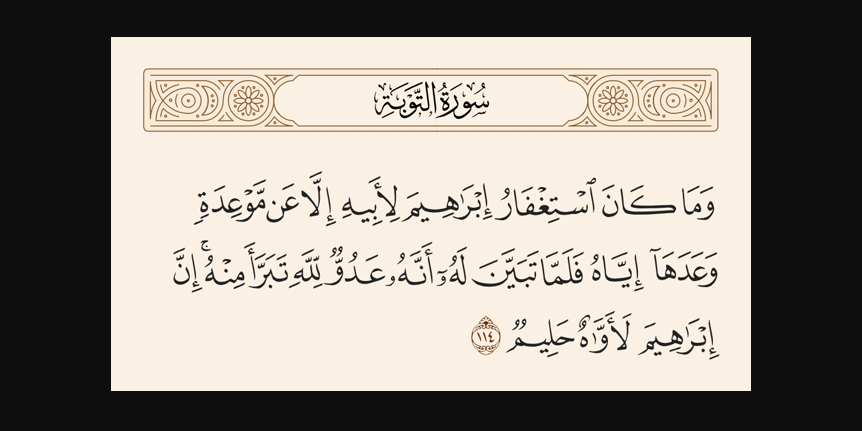 سُورَةُ التَّوۡبَةِ
وَمَا كَانَ ٱسۡتِغۡفَارُ إِبۡرَٰهِيمَ لِأَبِيهِ إِلَّا عَن مَّوۡعِدَةٖ
وَعَدَهَآ إِيَّاهُ فَلَمَّا تَبَيَّنَ لَهُۥٓ أَنَّهُۥ عَدُوّٞ لِّلَّهِ تَبَرَّأَ مِنۡهُۚ إِنَّ
إِبۡرَٰهِيمَ لَأَوَّٰهٌ حَلِيمٞ ١١٤